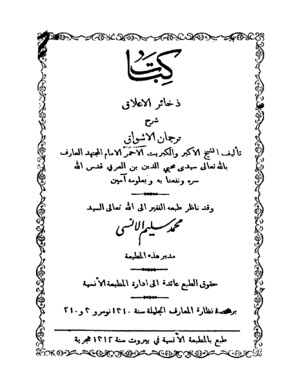 كتاب
ذخائر الاعلاق
شرح
ترجمان الاشواق
تأليف الشيخ الاكبر والكبريت الاحمر الامام المجتهد العارف
بالله تعالى سيدي محيي الدين بن العربي قدس الله
سره ونفعنا به وبعلومه آمين
وقد ناظر طبعه الفقير الى الله تعالى السيد
محمد سليم الانسي
مدير هذه المطبعة
حقوق الطبع عائدة الى ادارة المطبعة الأنسية
برخصة نظارة المعارف الجليلة سنة ١٣١٠ نومرو ٣ و ٢١٠
طبع بالمطبعة الأنسية في بيروت سنة ١٣١٢ هجرية